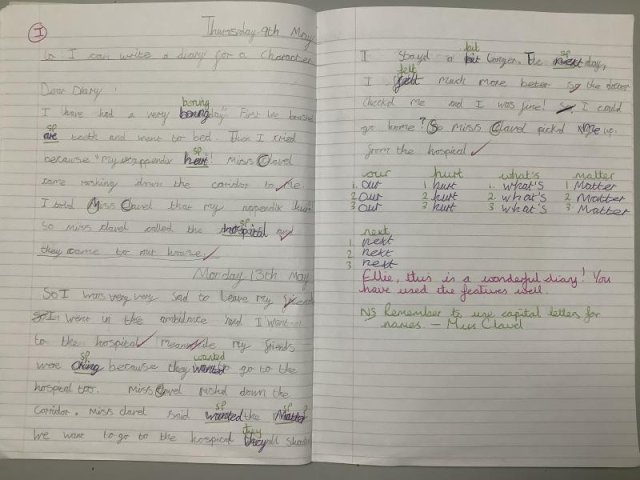 I
Thursday 9th May
Lo I can write a diary for a character
Dear Diary,
boring
I have had a very boring day". First we brushed
sp sp
are teeth and went to bed. Then I cried
because "My appendix hert! Miss Clavel
came rushing down the corridor to me.
I told Miss Clavel that my appendix hurt
sp
So miss clavel called the hospital and
they came to out house
Monday 13th May
So I was very very sad to leave my friends
So I went in the ambulance and I went
to the hospital. Meanwhile my friends
sp wanted
were criing because they wanted to go to the
hospital too. Miss Clavel rushd down the
sp sp
Corridor. Miss clavel said wanted the Matter
they
We want to go to the hospital they all shouted
but sp
I stayd a bit longer. The next day,
felt
I felt much more better. So the doctor
checkd me and I was fine! So, I could
go home? So Miss Clavel pickd me up
from the hospital
our hurt what's matter
1. our 1 hurt 1. what's 1 Matter
2 our 2 hurt 2. what's 2 Matter
3 our 3 hurt 3. what's 3 Matter
next
1. next
2 next
3 next
Ellie, this is a wonderful diary! You
have used the features well.
NS Remember to use capital letters for
names. – Miss Clavel